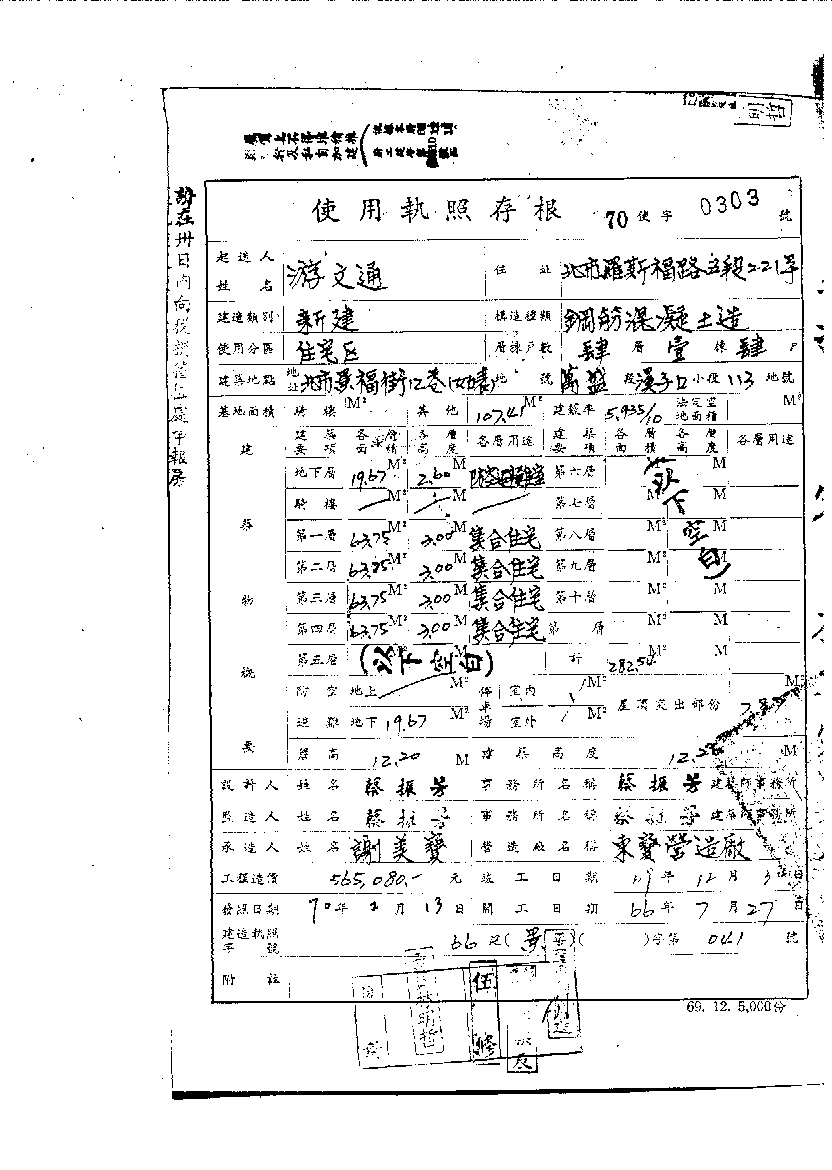 使用執照存根 70使字 0303 號
起造人姓名 游文通 住址 北市羅斯福路五段221号
建造類別 新建 構造種類 鋼筋混凝土造
使用分區 住宅区 層棟戶數 肆層壹棟肆戶
建築地點 地址 北市景福街12巷 地號 萬盛段溪子口小段113地號
基地面積 騎樓 M² 其他 107.41 建蔽率 5.935/10 法定空地面積 M²
建築物概要 建築要項 各層面積 各層高度 各層用途 建築要項 各層面積 各層高度 各層用途
地下層 19.67 M² 2.60 M 第六層 M² M
騎樓 M² M 第七層 M² M
第一層 63.75 M² 3.00 M 集合住宅 第八層 M² M
第二層 63.75 M² 3.00 M 集合住宅 第九層 M² M
第三層 63.75 M² 3.00 M 集合住宅 第十層 M² M
第四層 63.75 M² 3.00 M 集合住宅 第 層 M² M
第五層 (以下空白) M² M 計 282.50
(以下空白)
防空避難 地上 M² 停車場 室內 M² 屋頂突出部份 M²
地下 19.67 M² 室外 M²
簷高 12.20 M 建築高度 M
設計人 姓名 蔡振芳 事務所名稱 蔡振芳 建築師事務所
監造人 姓名 蔡振芳 事務所名稱 蔡振芳 建築師事務所
承造人 姓名 謝美寶 營造廠名稱 東寶營造廠
工程造價 565,080.- 元 竣工日期 69年12月3日
發照日期 70年2月13日 開工日期 66年7月27日
建造執照字號 66 建( 景 )( )字第 041 號
附註
69. 12. 5,000份